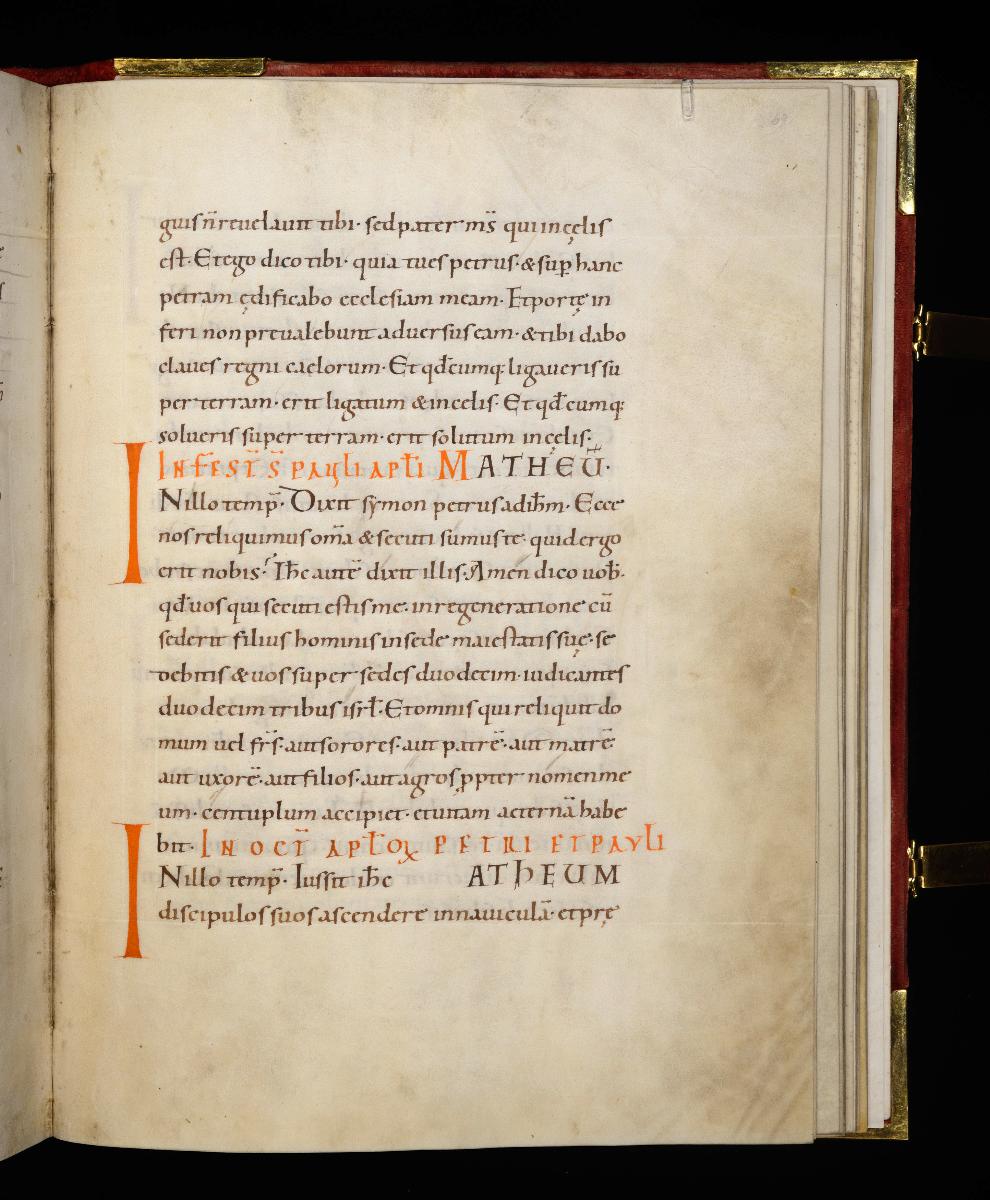 guis n̄ reuelauit tibi· sed pater m̄s qui in cęlis
est· Et ego dico tibi· quia tu es petrus· & sup̱ hanc
petram ędificabo ecclesiam meam· Et portę in
feri non preualebunt aduersus eam· & tibi dabo
claues regni caelorum· Et qđcumq; ligaueris su
per terram· erit ligatum & in celis· Et qđcumq;
solueris super terram· erit solutum in cęlis·
IN FEST̄ S̄ PAULI APŁI MATHEŪ·
INillo temp̄· Dixit symon petrus ad ih̄m· Ecce
nos reliquimus om̄a & secuti sumus te· quid ergo
erit nobis? Ih̄c autē dixit illis· Amen dico uob̄·
qđ uos qui secuti estis me· in regeneratione cū
sederit filius hominis in sede maiestatis suę· se
debitis & uos super sedes duodecim· iudicantes
duodecim tribus isrł· Et omnis qui reliquit do
mum uel fr̄s· aut sorores· aut patrē· aut matrē·
aut uxorē· aut filios· aut agros ꝓpter nomen me
um· centuplum accipiet· et uitam aeternā habe
bit· IN OCT̄ APŁOꝝ PETRI ET PAULI
INillo temp̄· Iussit ih̄c ATHEUM
discipulos suos ascendere in nauiculā· et prę